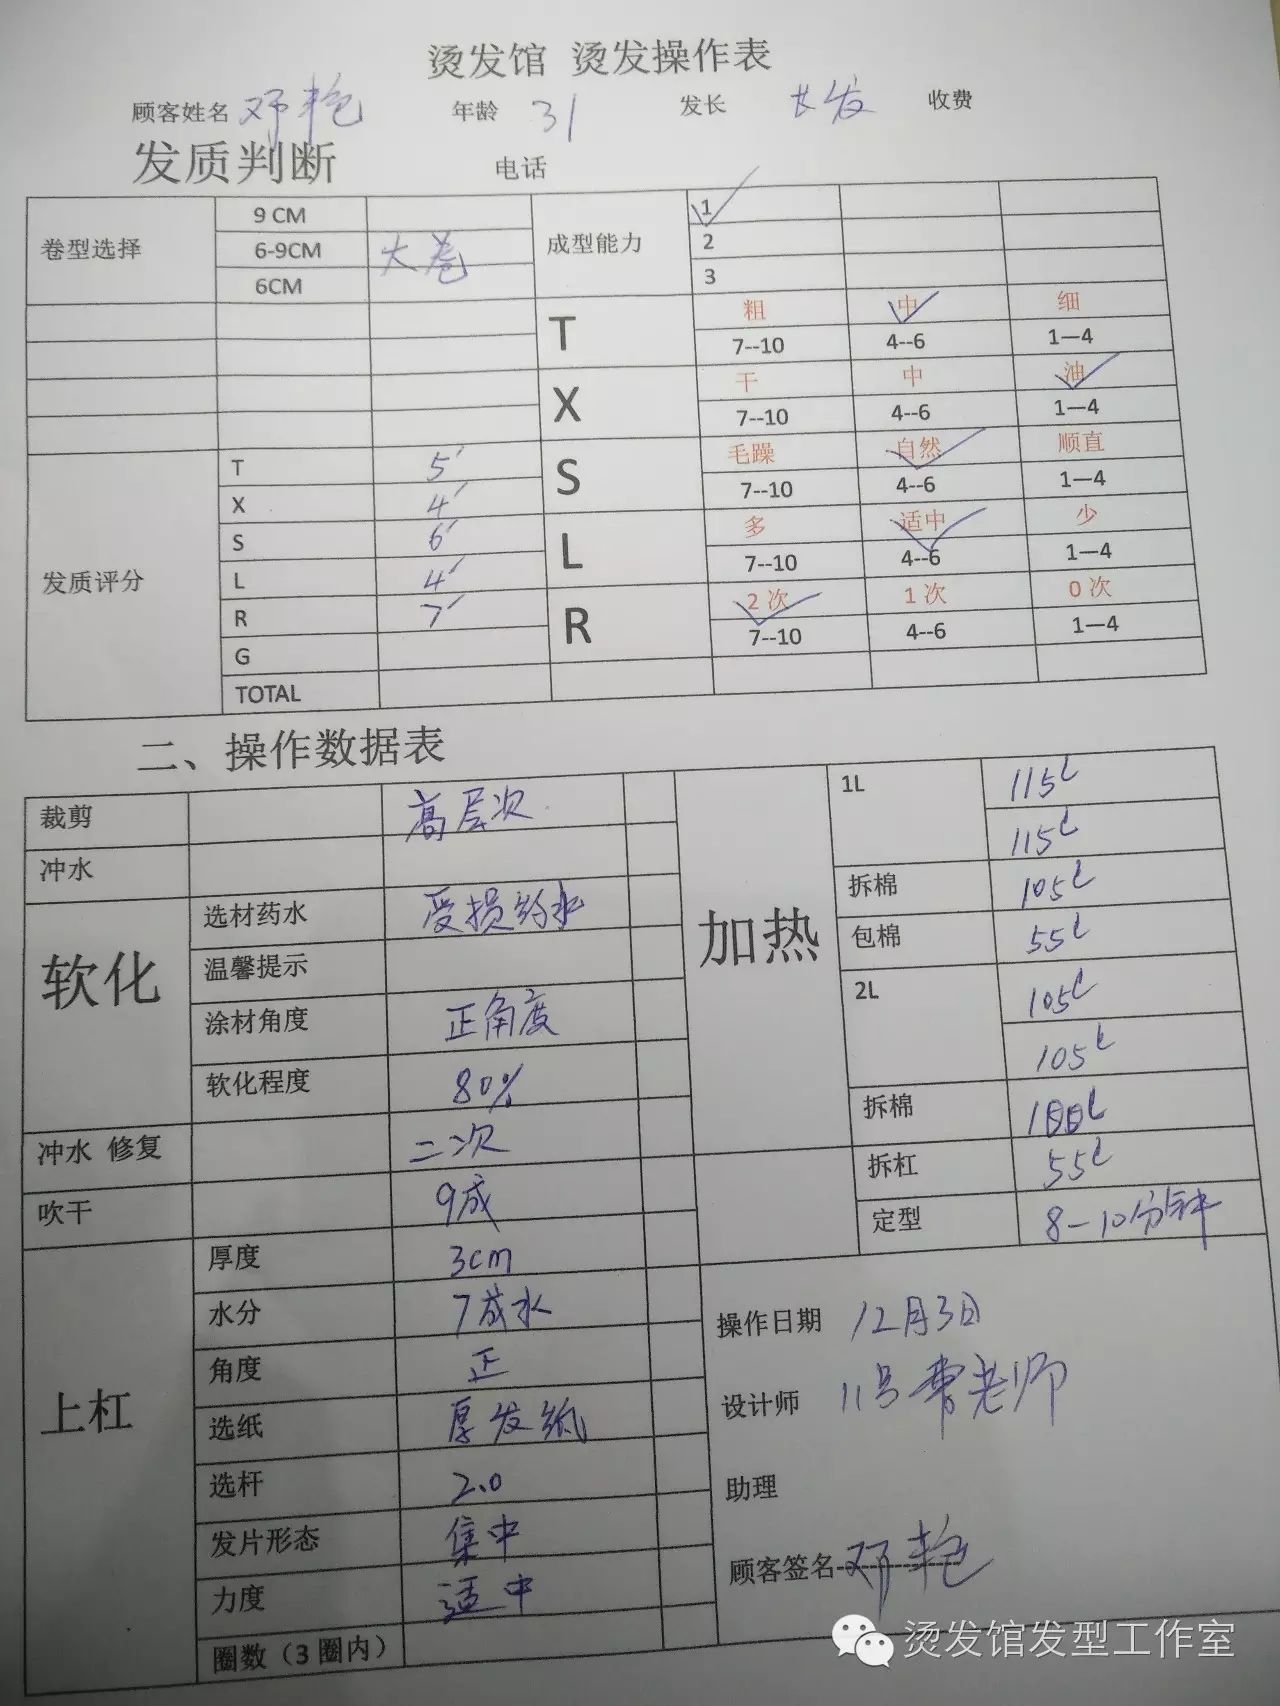 烫发馆 烫发操作表
顾客姓名 邓艳 年龄 31 发长 长发 收费
发质判断 电话
卷型选择 9 CM 成型能力 1 ✓
6-9CM 大卷 2
6CM 3
T 粗 中 ✓ 细
7--10 4--6 1—4
X 干 中 油 ✓
7--10 4--6 1—4
S 毛躁 自然 ✓ 顺直
7--10 4--6 1—4
L 多 适中 ✓ 少
7--10 4--6 1—4
R 2次 ✓ 1次 0次
7--10 4--6 1—4
发质评分
T 5′
X 4′
S 6′
L 4′
R 7′
G
TOTAL
二、操作数据表
裁剪 高层次
冲水
软化 选材药水 受损药水
温馨提示
涂材角度 正角度
软化程度 80%
冲水 修复 二次
吹干 9成
上杠 厚度 3cm
水分 7成水
角度 正
选纸 厚发纸
选杆 2.0
发片形态 集中
力度 适中
圈数（3圈内）
加热 1L 115℃
115℃
拆棉 105℃
包棉 55℃
2L 105℃
105℃
拆棉 100℃
拆杠 55℃
定型 8-10分钟
操作日期 12月3日
设计师 11号费老师
助理
顾客签名 邓艳
烫发馆发型工作室